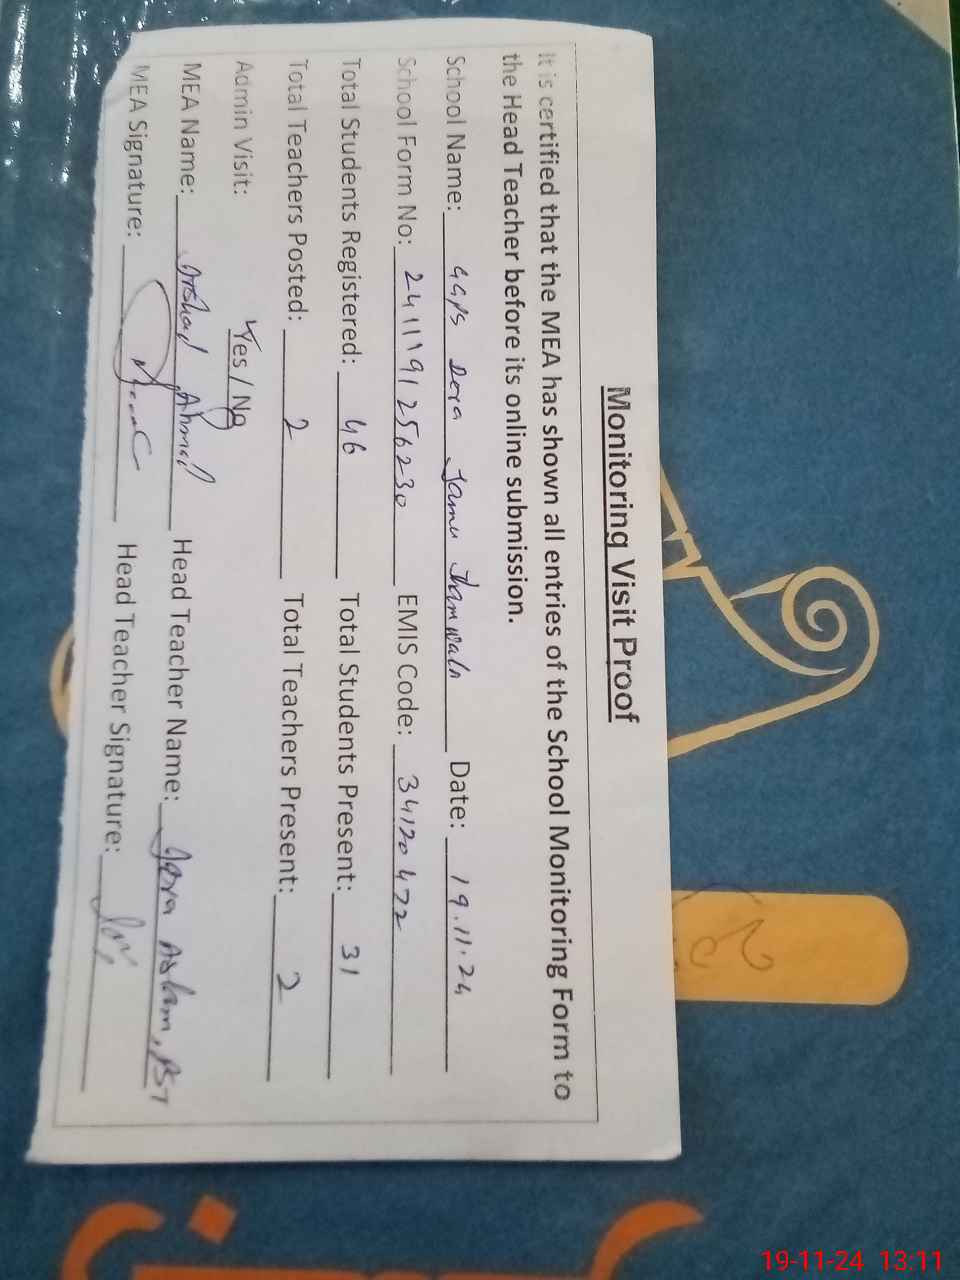 Monitoring Visit Proof
It is certified that the MEA has shown all entries of the School Monitoring Form to
the Head Teacher before its online submission.
School Name: GGPS Dera Jamu Thamwala Date: 19.11.24
School Form No: 2411191256230 EMIS Code: 34120472
Total Students Registered: 46 Total Students Present: 31
Total Teachers Posted: 2 Total Teachers Present: 2
Admin Visit: Yes / No
MEA Name: Arshad Ahmad Head Teacher Name: Aslam, PST
MEA Signature: Head Teacher Signature:
19-11-24 13:11